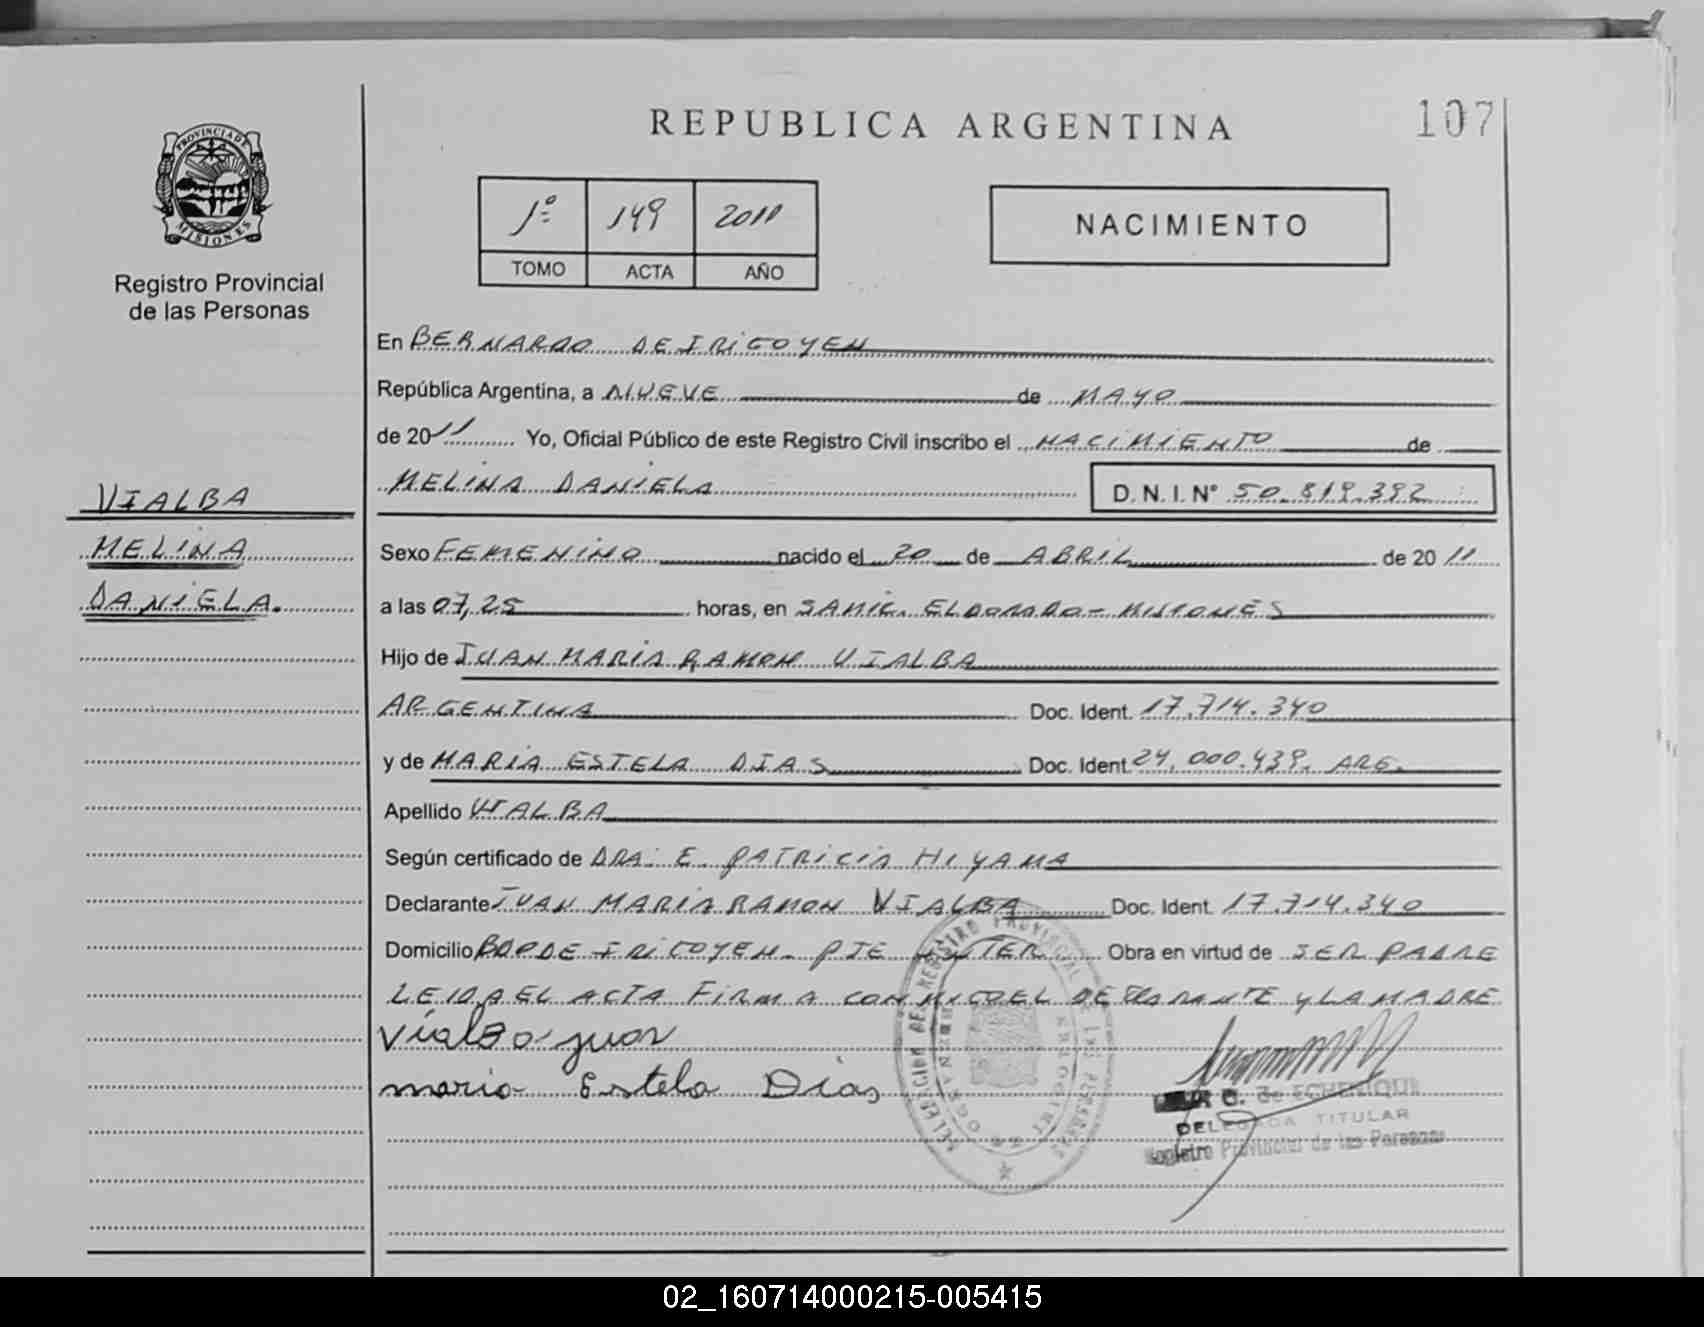 107
REPUBLICA ARGENTINA
PROVINCIA DE
MISIONES
Registro Provincial
de las Personas
1º 149 2011
TOMO ACTA AÑO
NACIMIENTO
En BERNARDO DE IRIGOYEN
República Argentina, a NUEVE de MAYO
de 2011 Yo, Oficial Público de este Registro Civil inscribo el NACIMIENTO de
MELINA DANIELA D.N.I. Nº 50.819.392
VIALBA
MELINA
DANIELA.
Sexo FEMENINO nacido el 20 de ABRIL de 2011
a las 07,25 horas, en SAMIC. ELDORADO - MISIONES
Hijo de JUAN MARIA RAMON VIALBA
ARGENTINA Doc. Ident. 17.714.340
y de MARIA ESTELA DIAS Doc. Ident. 24.000.439. ARG.
Apellido VIALBA
Según certificado de DRA. E. PATRICIA HIYAMA
Declarante JUAN MARIA RAMON VIALBA Doc. Ident. 17.714.340
Domicilio BDO DE IRIGOYEN - PJE Obra en virtud de SER PADRE
LEIDA EL ACTA FIRMA CONMIGO EL DECLARANTE Y LA MADRE
Vialba juan
maria Estela Dias
C. de ECHENIQUE
DELEGADA TITULAR
Registro Provincial de las Personas
02_160714000215-005415